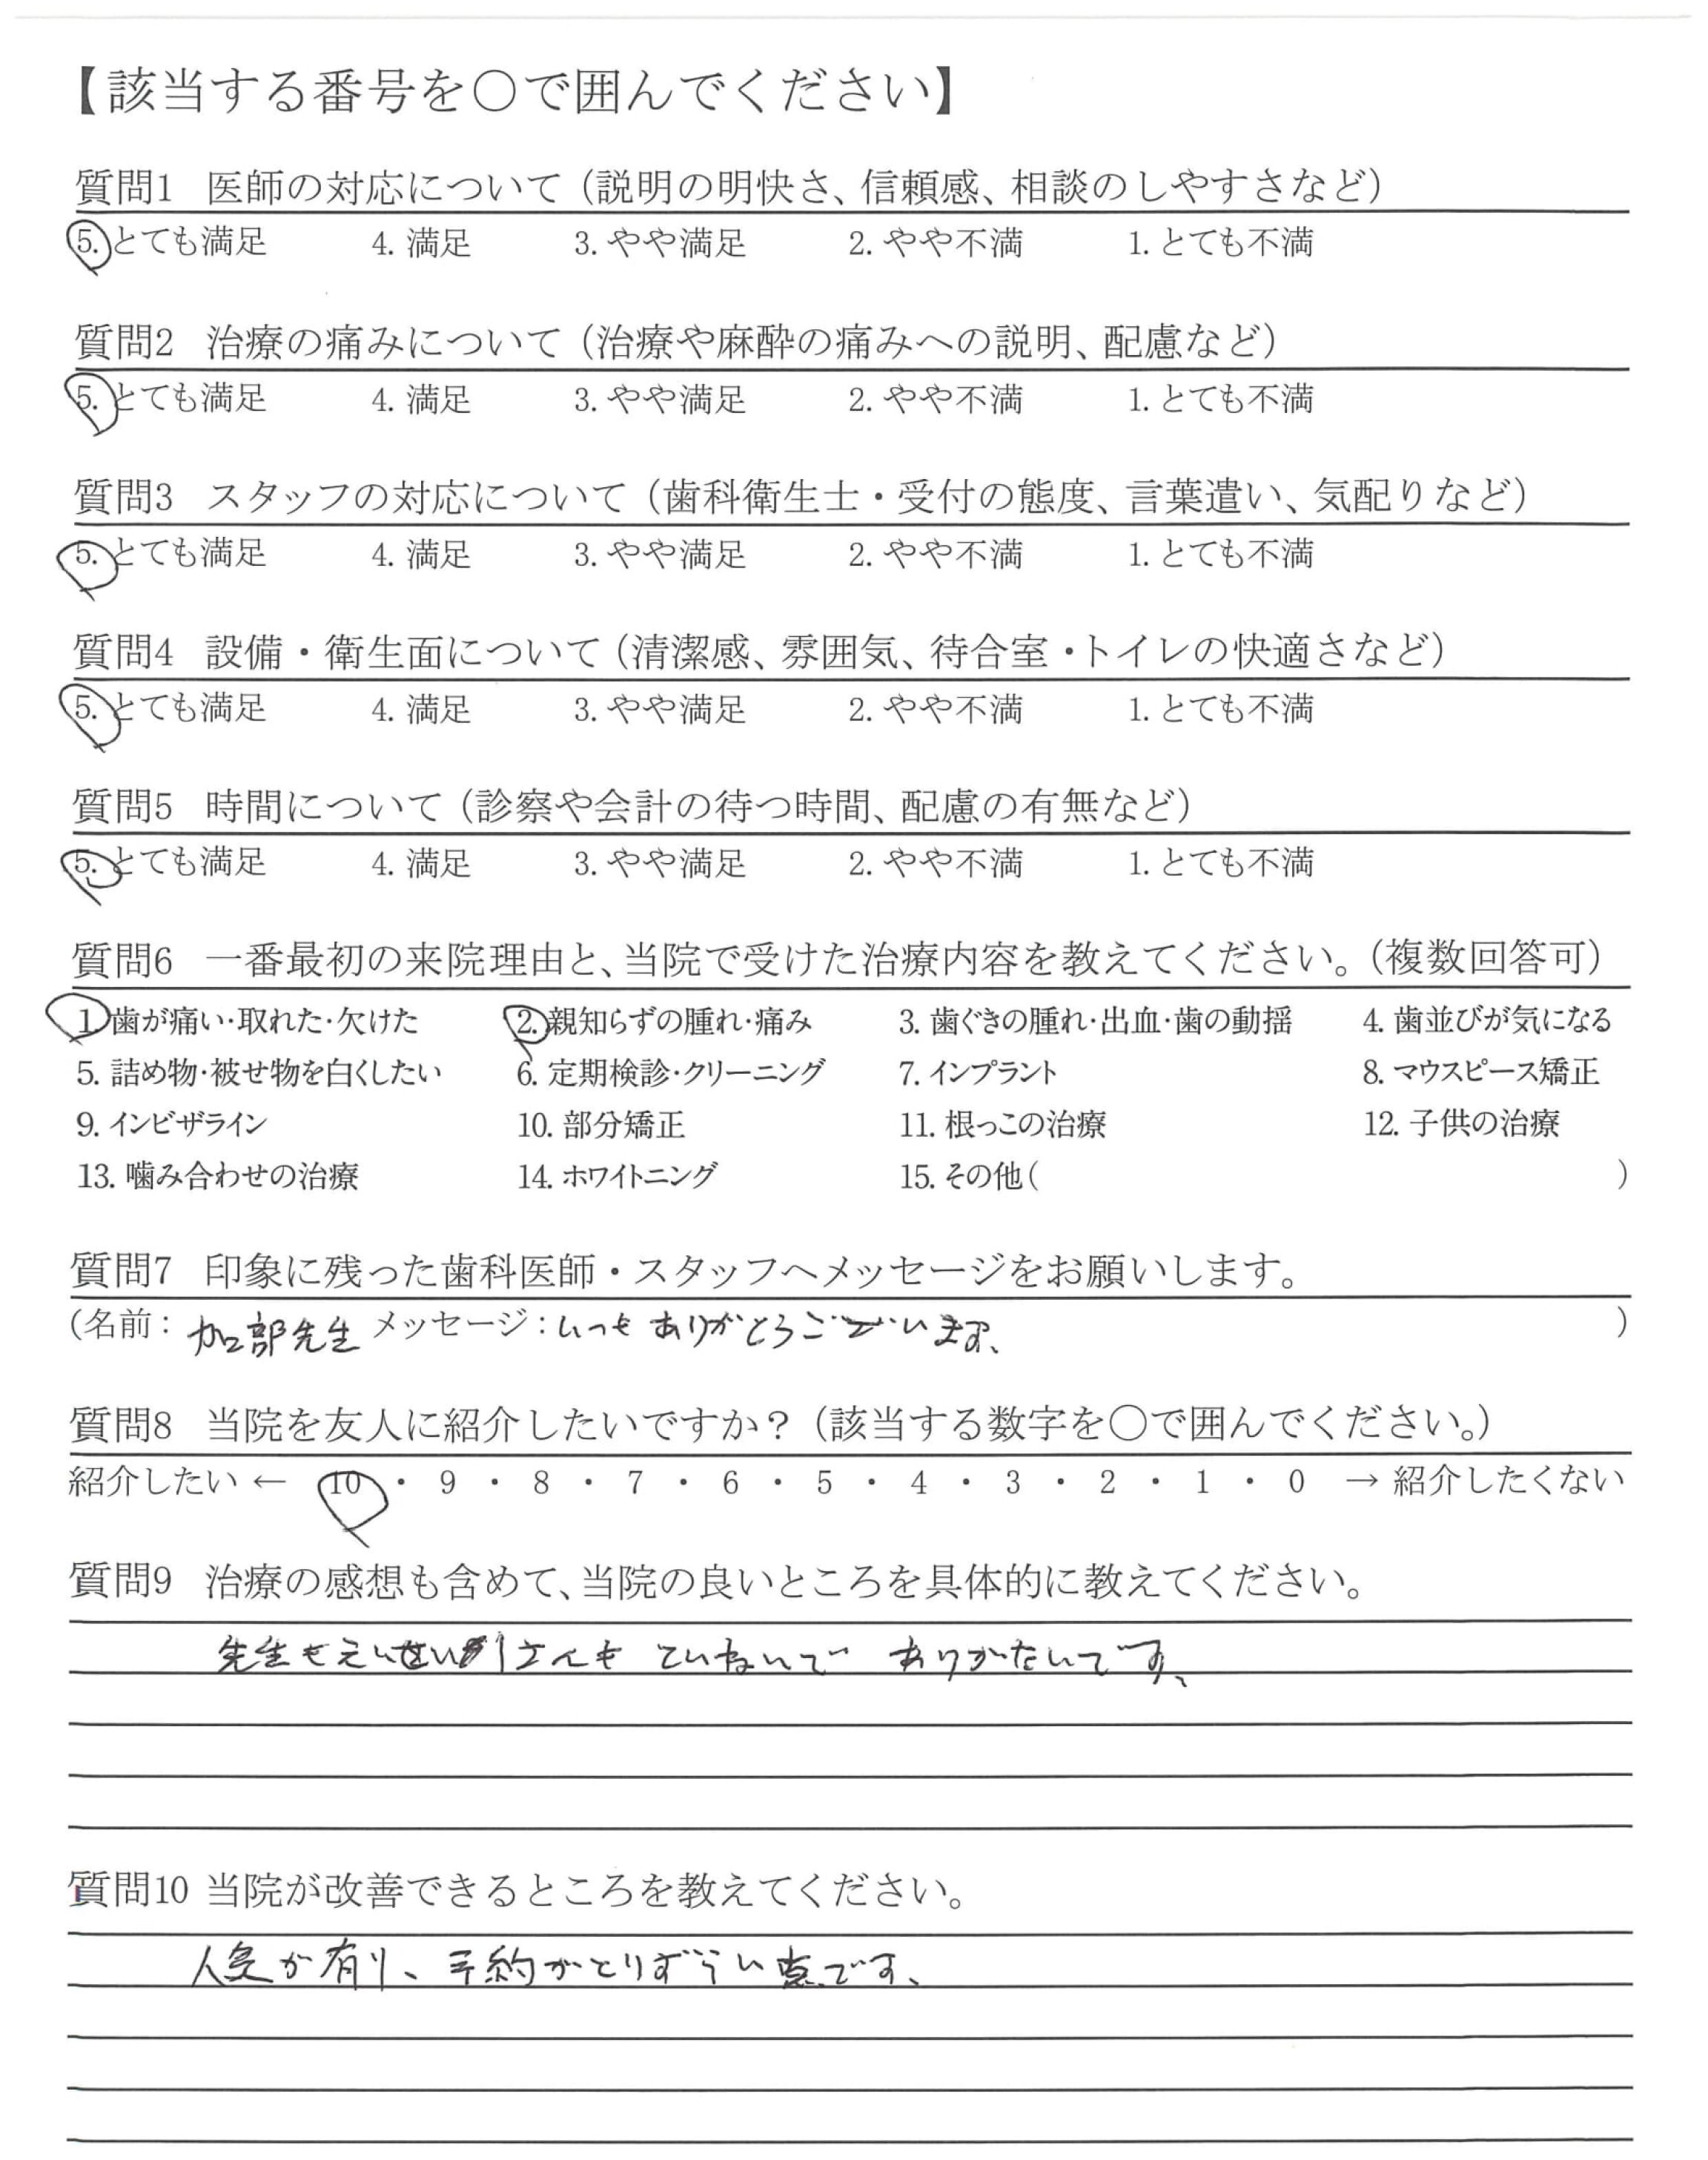 【該当する番号を○で囲んでください】
質問1 医師の対応について（説明の明快さ、信頼感、相談のしやすさなど）
5. とても満足 4. 満足 3. やや満足 2. やや不満 1. とても不満
質問2 治療の痛みについて（治療や麻酔の痛みへの説明、配慮など）
5. とても満足 4. 満足 3. やや満足 2. やや不満 1. とても不満
質問3 スタッフの対応について（歯科衛生士・受付の態度、言葉遣い、気配りなど）
5. とても満足 4. 満足 3. やや満足 2. やや不満 1. とても不満
質問4 設備・衛生面について（清潔感、雰囲気、待合室・トイレの快適さなど）
5. とても満足 4. 満足 3. やや満足 2. やや不満 1. とても不満
質問5 時間について（診察や会計の待つ時間、配慮の有無など）
5. とても満足 4. 満足 3. やや満足 2. やや不満 1. とても不満
質問6 一番最初の来院理由と、当院で受けた治療内容を教えてください。（複数回答可）
1. 歯が痛い・取れた・欠けた 2. 親知らずの腫れ・痛み 3. 歯ぐきの腫れ・出血・歯の動揺 4. 歯並びが気になる
5. 詰め物・被せ物を白くしたい 6. 定期検診・クリーニング 7. インプラント 8. マウスピース矯正
9. インビザライン 10. 部分矯正 11. 根っこの治療 12. 子供の治療
13. 噛み合わせの治療 14. ホワイトニング 15. その他（ ）
質問7 印象に残った歯科医師・スタッフへメッセージをお願いします。
（名前：加部先生 メッセージ：いつもありがとうございます、 ）
質問8 当院を友人に紹介したいですか？（該当する数字を○で囲んでください。）
紹介したい ← 10 ・ 9 ・ 8 ・ 7 ・ 6 ・ 5 ・ 4 ・ 3 ・ 2 ・ 1 ・ 0 → 紹介したくない
質問9 治療の感想も含めて、当院の良いところを具体的に教えてください。
先生もえいせいしさんも ていねいで ありがたいです、
質問10 当院が改善できるところを教えてください。
人気が有り、予約がとりずらい点です、